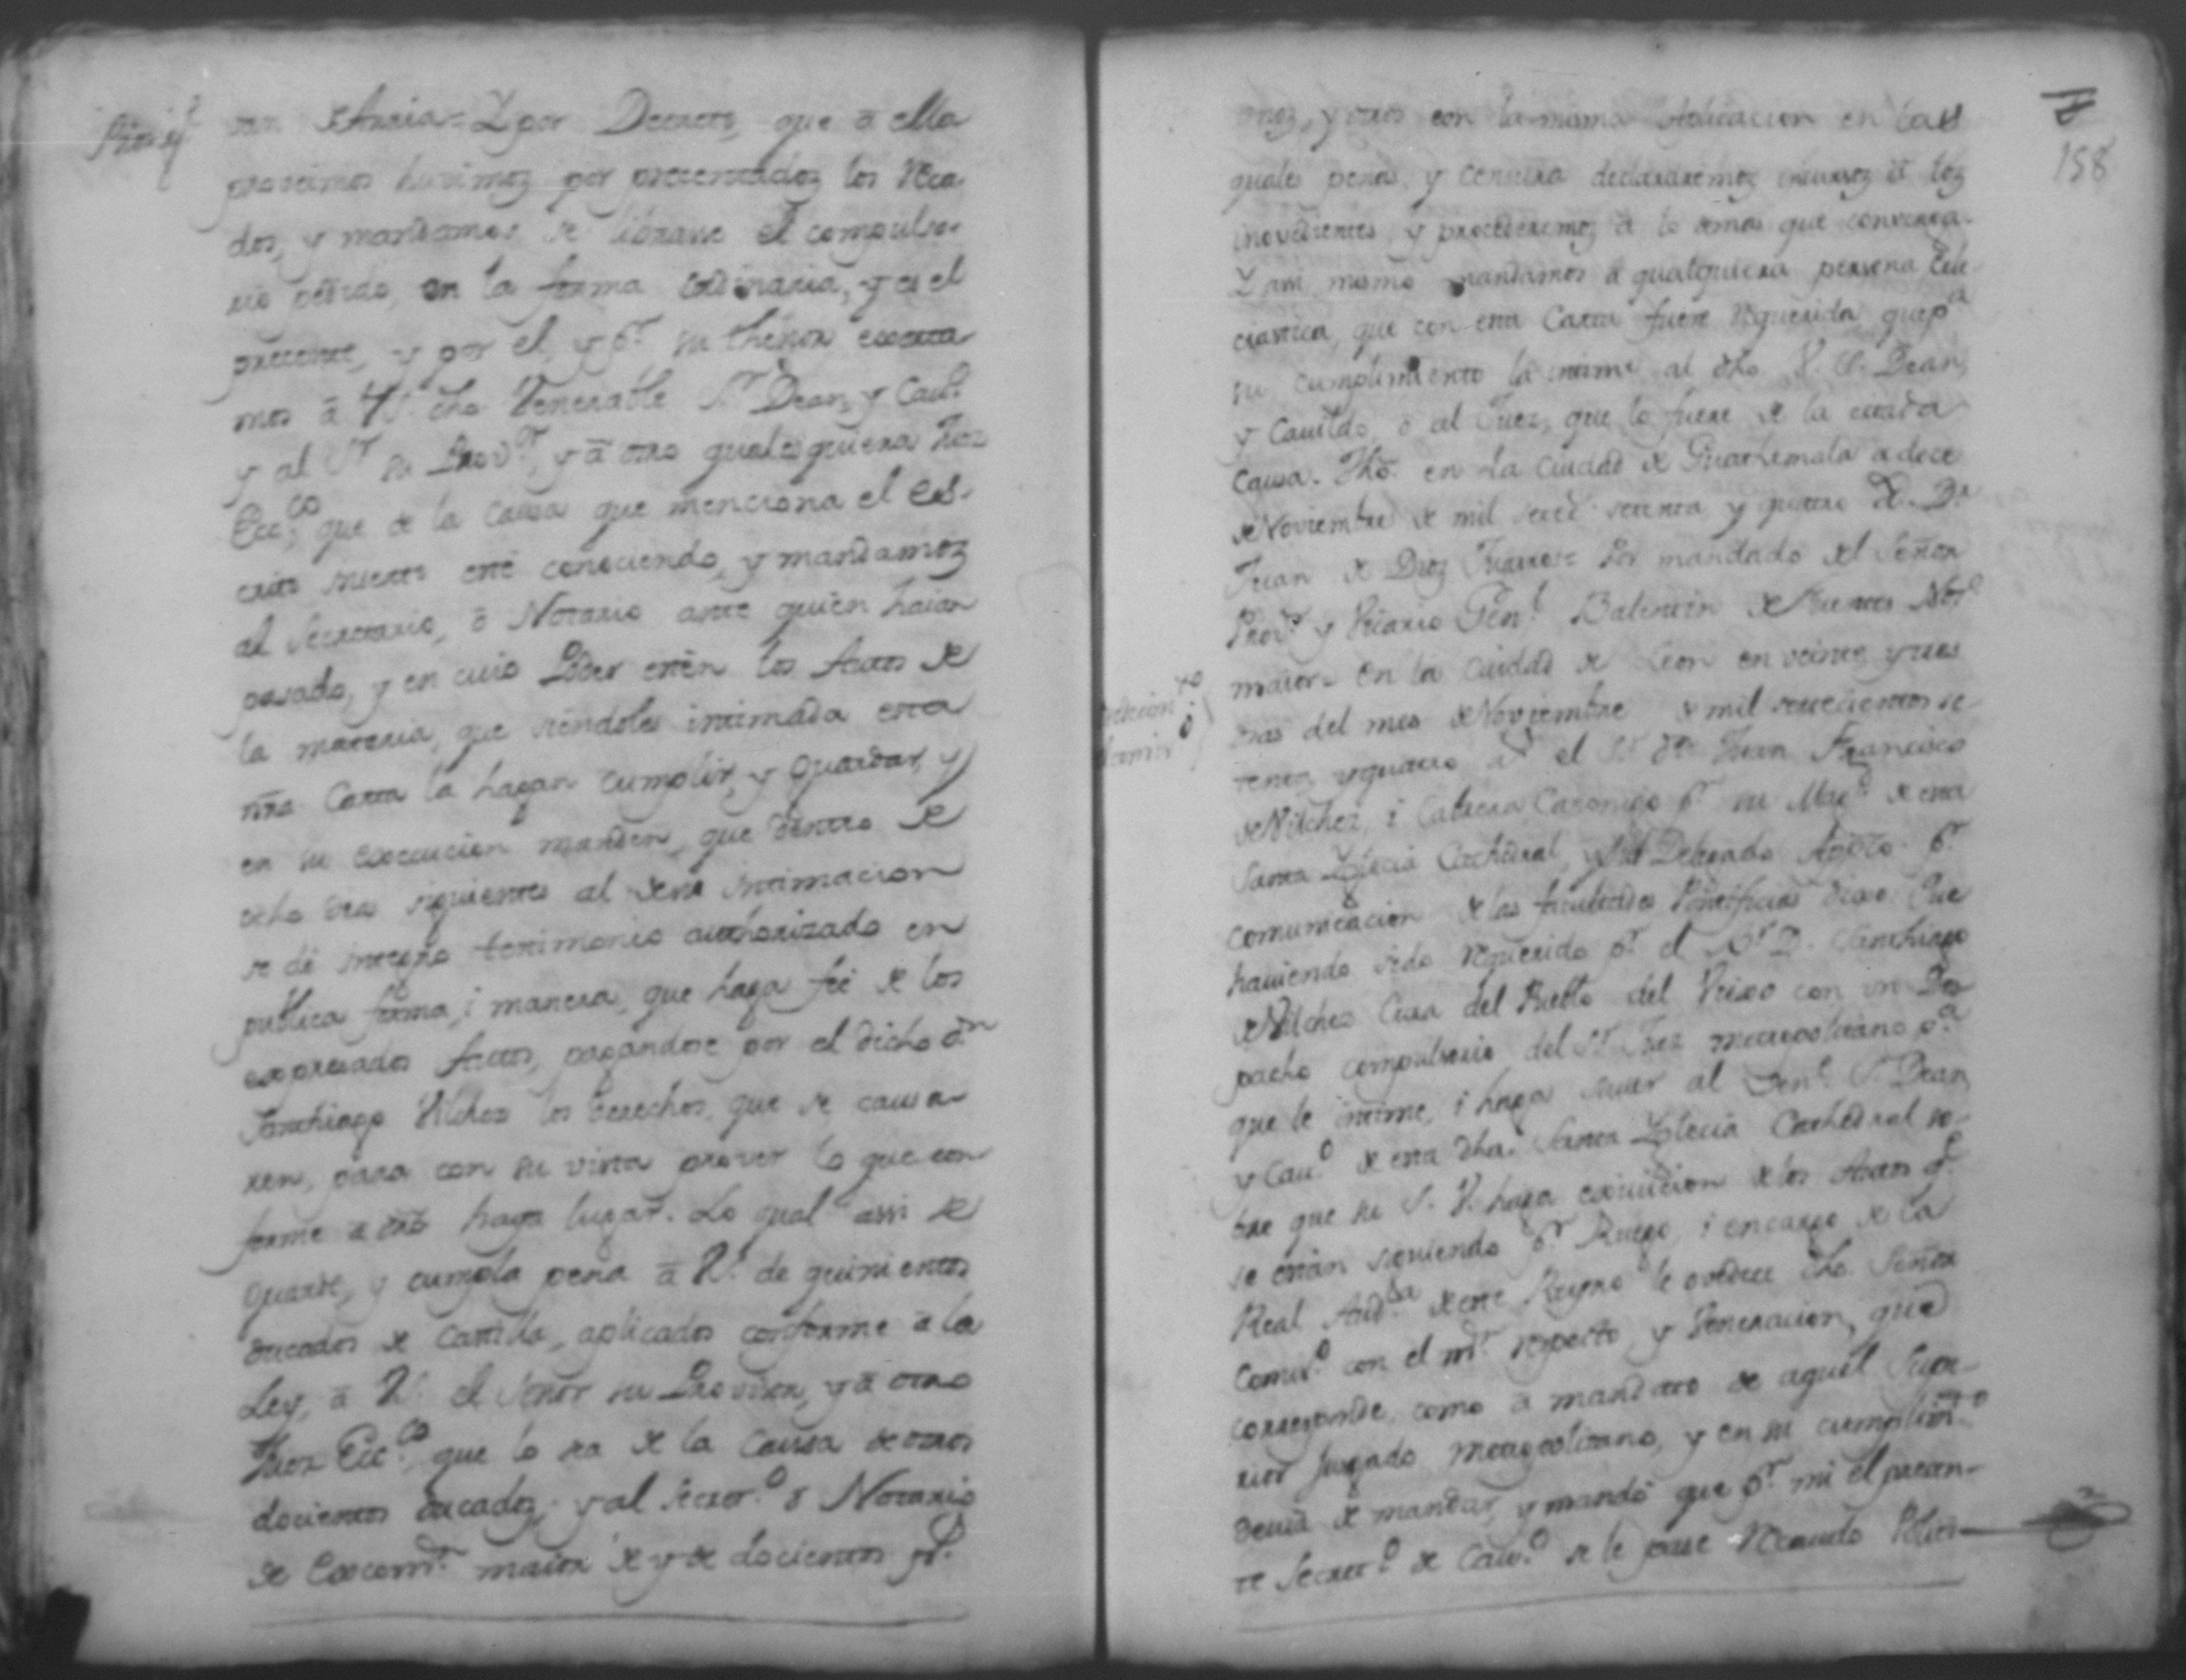 Prosig.e
ron de Arria= Y por Decreto, que â ella
proveimos huvimoz por presentadoz los Reca-
dos, y mandamos se librasse el compulso-
rio pedido, en la forma ordinaria, y es el
presente, y por el, y p.r su thenor exorta-
mos â V.S. dho Venerable S.r Dean, y Cav.o
y al S.r su Prov.or, y â otro qualesquiera Juez
Ecc.co, que de la Causa que menciona el es-
crito inserto esté conociendo, y mandamoz
al Secretario, ô Notario ante quien haian
pasado, y en cuio Poder estên los Autos de
la materia, que siendoles intimada esta
nrã Carta la hagan cumplir, y guardar, y
en su execucion manden, que dentro de
ocho dias siguientes al de su intimacion
se dé integro testimonio authorizado en
publica forma, i manera, que haga feé de los
expresados Autos, pagandose por el dicho d.n
Santhiago Vilches los derechos, que se causa-
ren, para con su vista prover lo que con-
forme a dro haga lugar. Lo qual assi se
guarde, y cumpla pena â V.S. de quinientos
ducados de Castilla, aplicados conforme â la
Ley, â V. el Señor su Provisor, y â otro
Juez Ecc.co, que lo sea de la Causa de otros
docientos ducadoz; y al Secret.o ô Notario
de Excom.n maior de y de docientos p.s
158
otroz, y otros con la misma Aplicacion en las
quales penas, y censura declararemoz incursoz â loz
inovedientes, y procederemoz â lo demas que convenga.
Y assi mismo mandamos â qualquiera persona Ecle-
ciastica, que con esta Carta fuere requerida que p.a
su cumplimiento la intime al dho V.S. Dean,
y Cavildo, ô al Juez, que lo fuere de la citada
Causa. Fhõ. en la Ciudad de Guathemala a doce
de Noviembre de mil setec.s setenta y quatro
Juan de Dioz Juarros= Por mandado del Señor
Prov.or y Vicario Gen.l Balentin de Fuentes Not.o
maior= En la Ciudad de Leon en veinte y tres
dias del mes de Noviembre de mil setecientos se-
tenta, y quatro a.s el S.r d.n Juan Francisco
de Vilches, i Cabrera Canonigo p.r su Mag.d de esta
Santa Yglecia Cathedral, y Sub Delegado App.co p.r
comunicacion de las facultades Pontificias dixo: Que
haviendo sido requerido p.r el B.r D. Santhiago
de Vilches Cura del Pueblo del Viejo con un Des-
pacho compulsorio del S.r Juez metropolitano p.a
que le intime, i haga saver al Ven.e S.r Dean,
y Cav.o de esta dha. Santa Yglecia Cathedral so-
bre que su S. V. haga exivicion de los Autos q.e
se estan siguiendo p.r Ruego, i encargo de la
Real Aud.cia de este Reyno le ovedece dho. Señor
Comis.o con el m.r respecto, y Veneracion, que
corresponde, como â mandato de aquel Supe-
rior Jusgado metropolitano, y en su cumplim.to
devia de mandar, y mandó que p.r mi el presen-
te Secret.o de Cav.o se le pase Recaudo Polit-